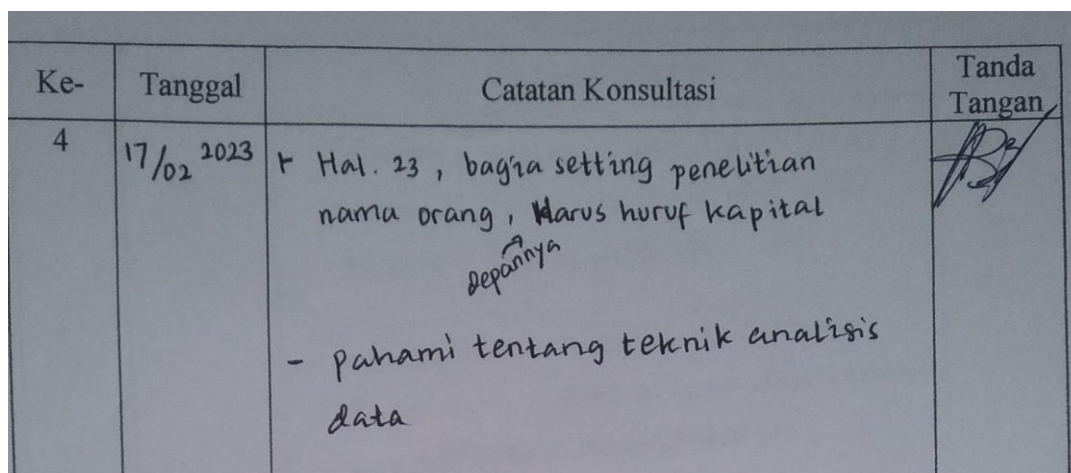 Ke-
Tanggal
Catatan Konsultasi
Tanda
Tangan
4
17/02 2023
- Hal. 23, bagia setting penelitian
nama orang, Harus huruf kapital
depannya
- pahami tentang teknik analisis
data